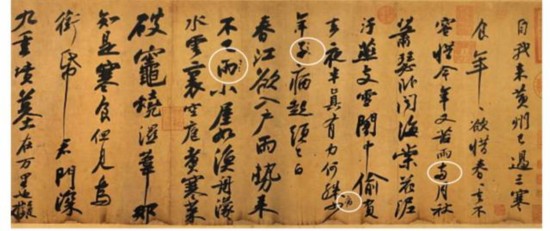 自我來黃州已過三寒
食年〻欲惜春〻去不
容惜今年又苦雨兩月秋
蕭瑟臥聞海棠花泥
汙燕支雪闇中偷負
去夜半真有力何殊病少
年子病起頭已白
春江欲入戶雨勢來
不已雨小屋如漁舟濛〻
水雲裏空庖煮寒菜
破竈燒濕葦那
知是寒食但見烏
銜帋君門深
九重墳墓在万里也擬